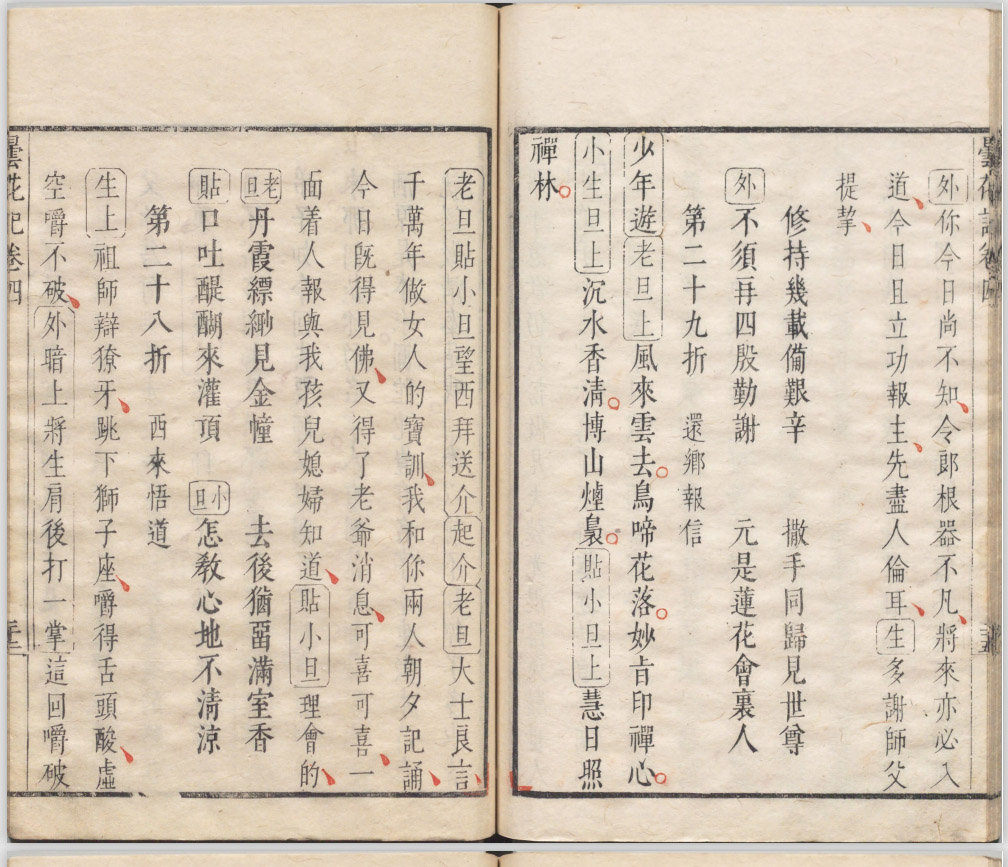 曇花記卷四
外你今日尚不知令郎根器不凡將來亦必入
道今日且立功報主先盡人倫耳生多謝師父
提挈
修持幾載備艱辛　撒手同歸見世尊
外不須再四殷勤謝　元是蓮花會裏人
第二十九折　還鄉報信
少年遊老旦上風來雲去鳥啼花落妙旨印禪心
小生旦上沉水香清博山煙裊貼小旦上慧日照
禪林
老旦貼小旦望西拜送介起介老旦大士良言
千萬年做女人的寶訓我和你兩人朝夕記誦
今日既得見佛又得了老爺消息可喜可喜一
面着人報與我孩兒媳婦知道貼小旦理會的
老旦丹霞縹緲見金幢　去後猶畱滿室香
貼口吐醍醐來灌頂　小旦怎教心地不清涼
第二十八折　西來悟道
生上祖師辯獠牙跳下獅子座嚼得舌頭酸虛
空嚼不破外暗上將生肩後打一掌這回嚼破
曇花記卷四